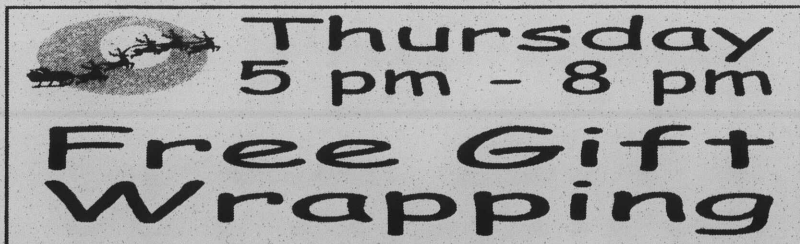 Thursday
5 pm - 8 pm
Free Gift
Wrapping